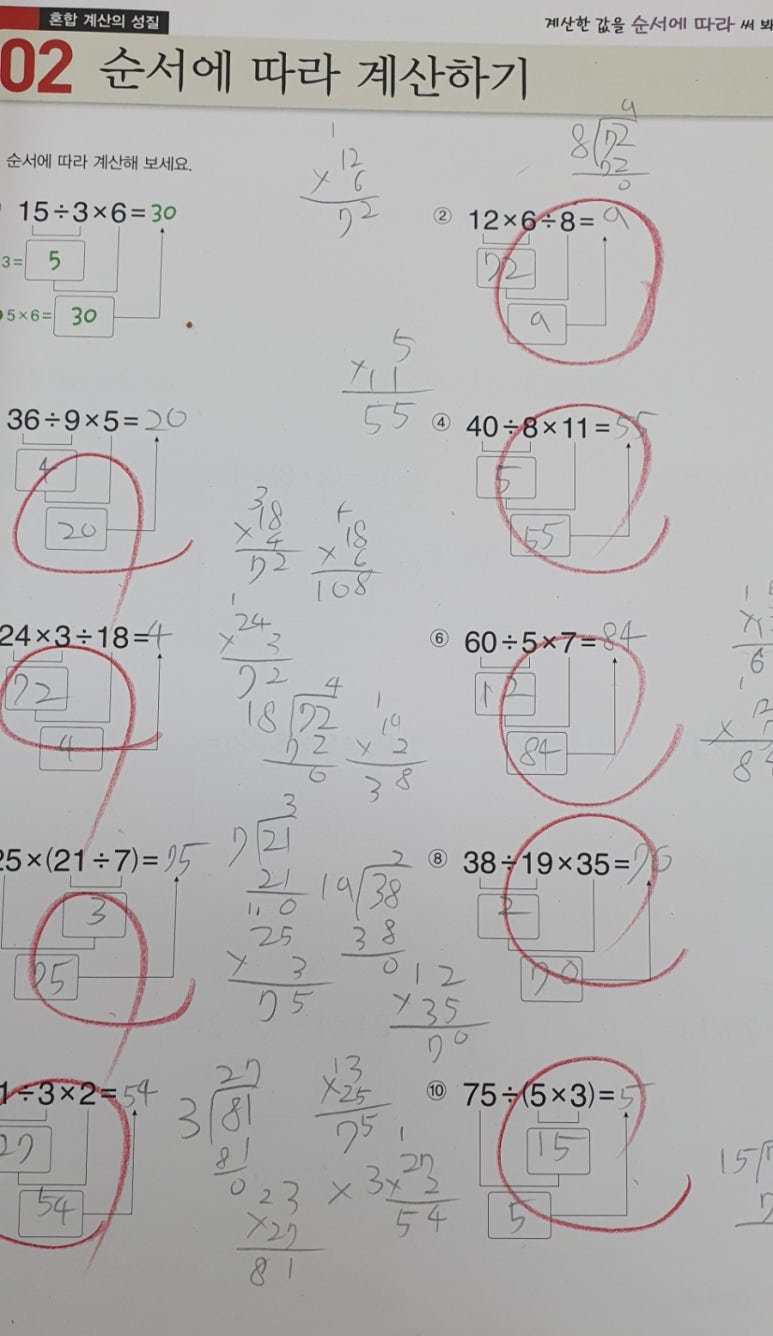 혼합 계산의 성질
계산한 값을 순서에 따라 써 봐
02 순서에 따라 계산하기
순서에 따라 계산해 보세요.
15÷3×6=30
3= 5
5×6= 30
1
12
× 6
72
9
8 72
72
0
② 12×6÷8=9
72
9
5
×11
55
36÷9×5=20
4
20
④ 40÷8×11=55
5
55
3
18
× 4
72
4
18
× 6
108
24×3÷18=4
72
4
1
24
× 3
72
4
18 72
72
0
1
19
× 2
38
⑥ 60÷5×7=84
12
84
25×(21÷7)=75
3
75
3
7 21
21
0
25
× 3
75
2
19 38
38
0
1 2
×35
70
⑧ 38÷19×35=70
2
70
1÷3×2=54
27
54
27
3 81
81
0
2 3
×27
81
13
×25
75
× 3
1
27
× 2
54
⑩ 75÷(5×3)=5
15
5
15